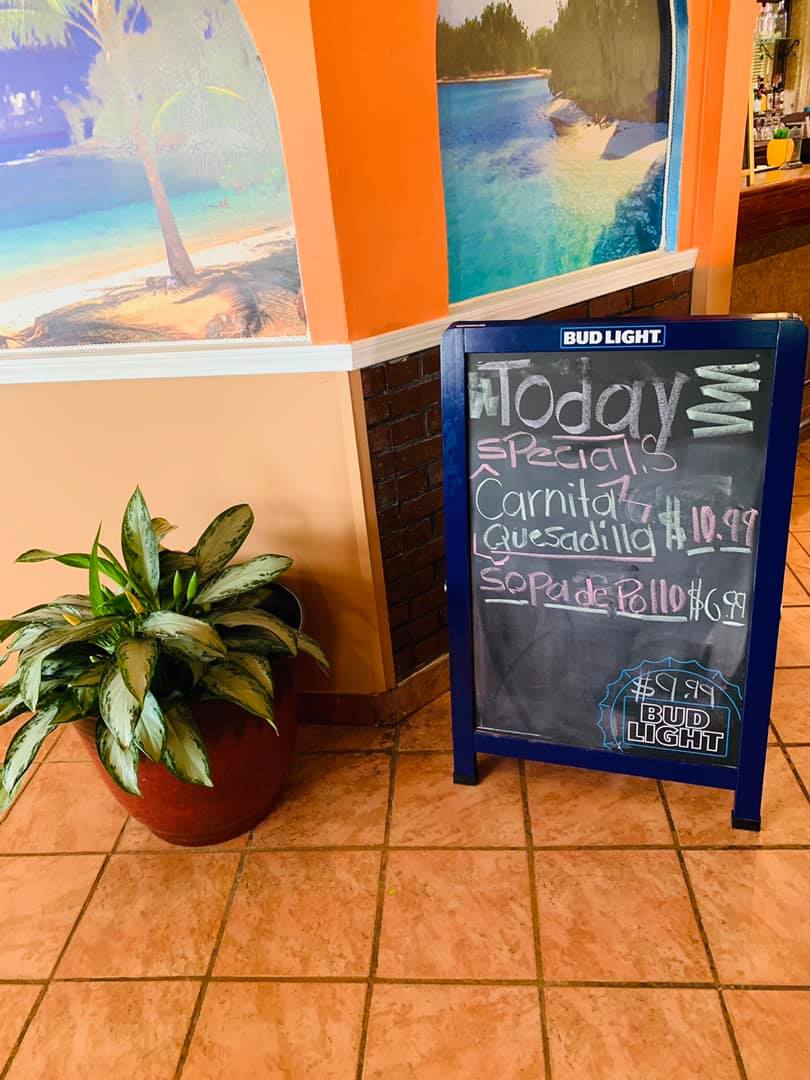 BUD LIGHT
Today
specials
Carnita
Quesadilla $10.99
Sopa de Pollo $6.99
BUD
LIGHT